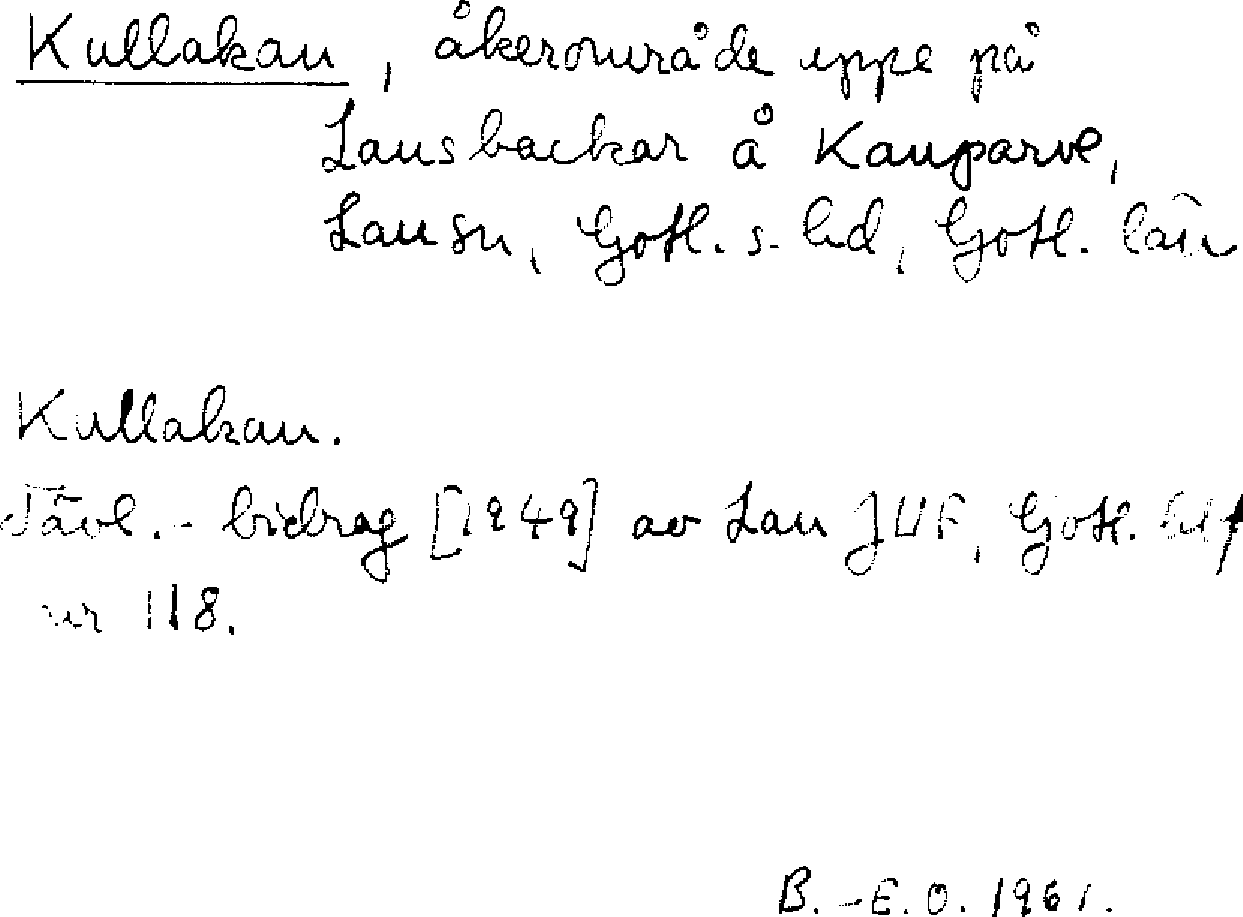 Kullakau, åkerområde uppe på
Lausbackar å Kauparve,
Lau sn, Gotl. s. hd, Gotl. län
Kullakau.
Tävl.-bidrag [1949] av Lau JUF, Gotl. hbf
nr 118.
B.-E.O. 1961.